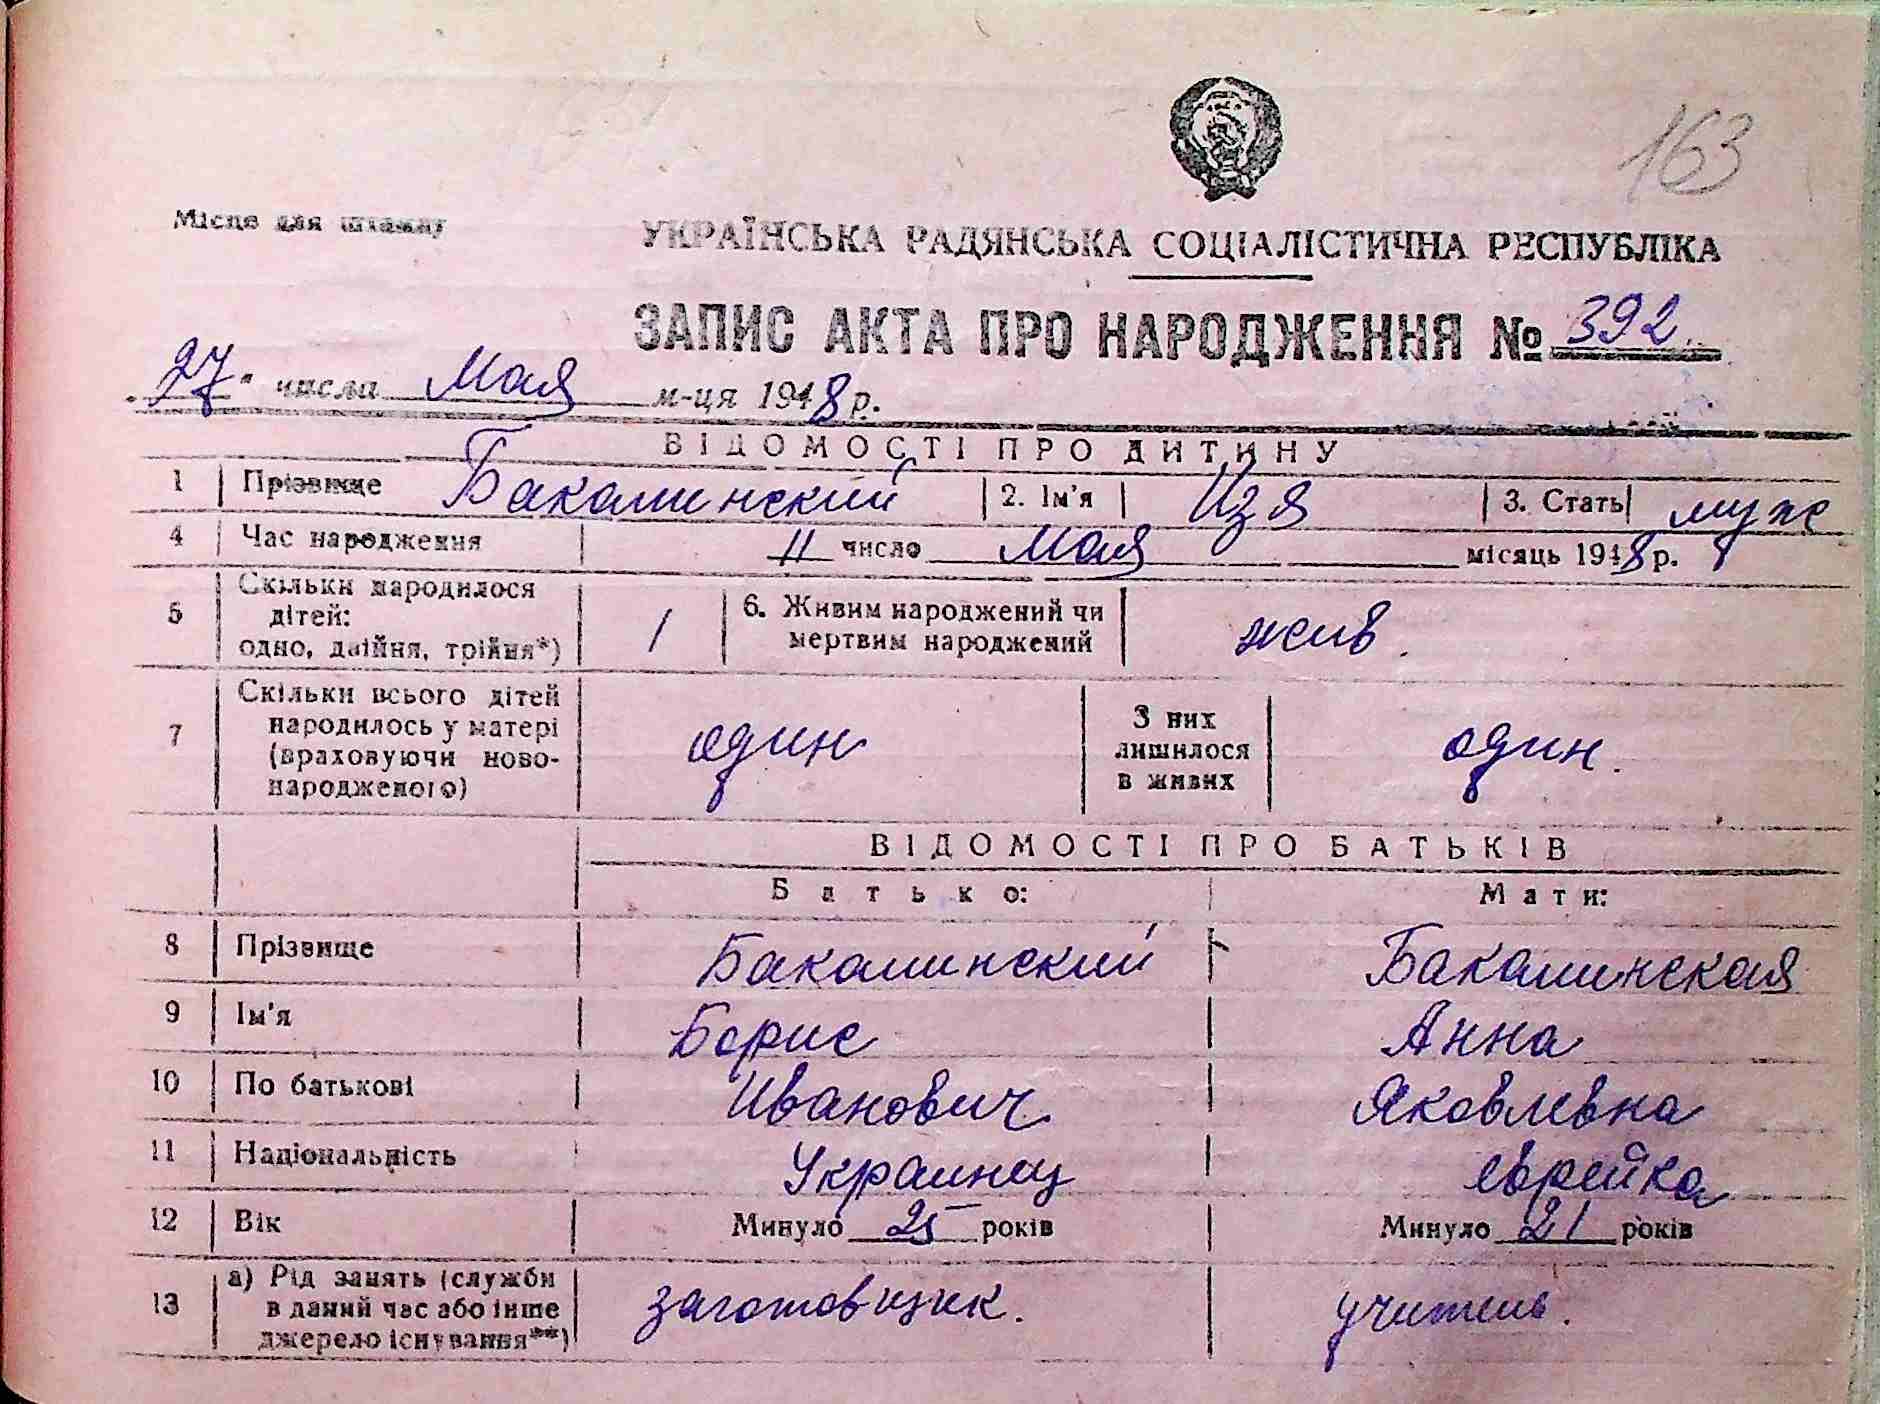 163
Місце для штампу
УКРАЇНСЬКА РАДЯНСЬКА СОЦІАЛІСТИЧНА РЕСПУБЛІКА
ЗАПИС АКТА ПРО НАРОДЖЕННЯ № 392
„27" числа Мая м-ця 1948 р.
ВІДОМОСТІ ПРО ДИТИНУ
1 Прізвище Бакалинский 2. Ім'я Изя 3. Стать муж
4 Час народження 11 число Мая місяць 1948 р.
5 Скільки народилося
дітей:
одно, двійня, трійня*)
1
6. Живим народжений чи
мертвим народжений
жив.
7 Скільки всього дітей
народилось у матері
(враховуючи ново-
народженого)
один
З них
лишилося
в живих
один.
ВІДОМОСТІ ПРО БАТЬКІВ
Батько: Мати:
8 Прізвище Бакалинский Бакалинская
9 Ім'я Борис Анна
10 По батькові Иванович Яковлевна
11 Національність Украинец еврейка
12 Вік Минуло 25 років Минуло 21 років
13 а) Рід занять (служби
в даний час або інше
джерело існування**)
заготовщик. учитель.